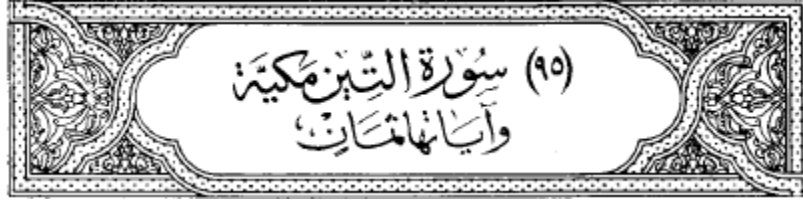 (٩٥) سُورَةُ التِّينِ مَكِيَّة
وَآيَاتهَا ثمَانِ